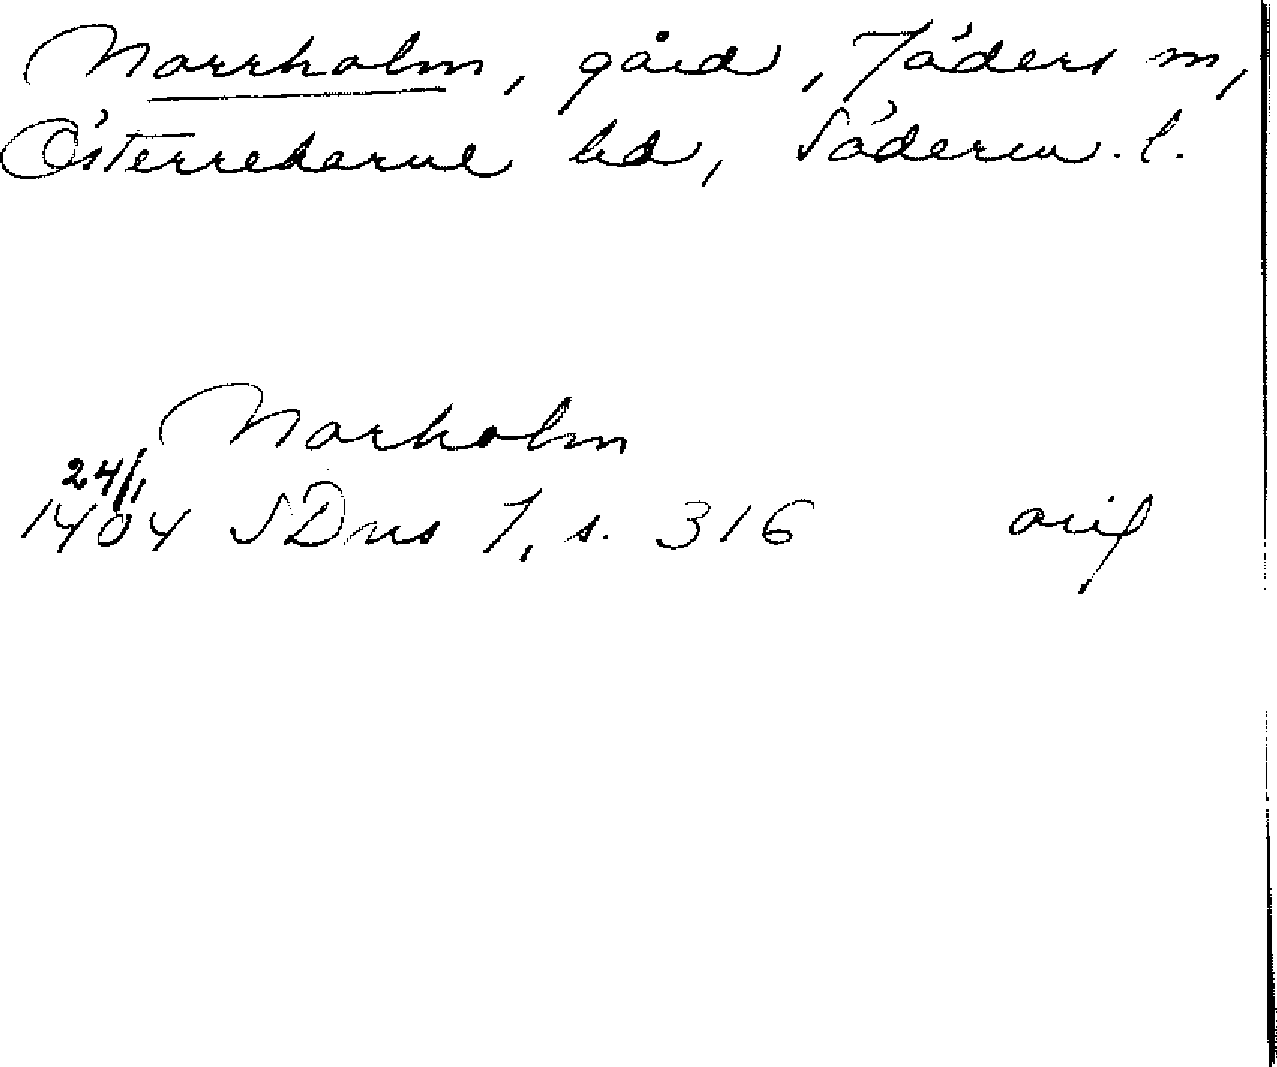 Norrholm, gård, Jäders sn,
Österrekarne hd, Söderm. l.
Norholm
24/1
1404 SDns 1, s. 316 orig